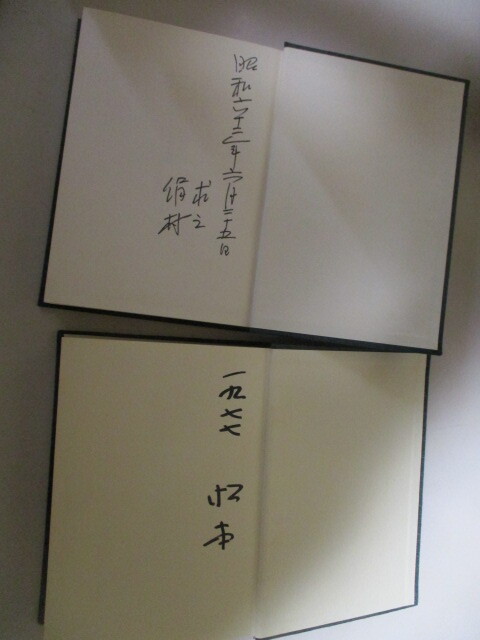 昭和六十三年六月二十五日
求之
一九七七
松本